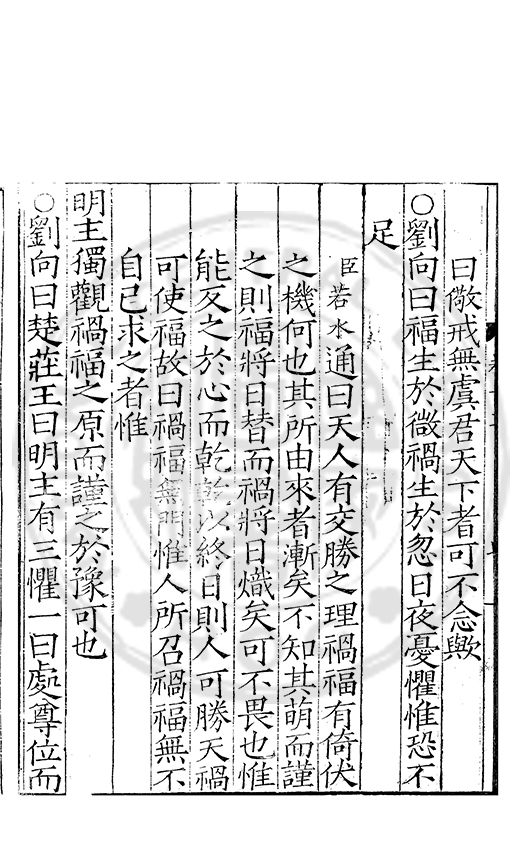 曰儆戒無虞君天下者可不念歟
○劉向曰福生於微禍生於忽日夜憂懼惟恐不
足
臣若水通曰天人有交勝之理禍福有倚伏
之機何也其所由來者漸矣不知其萌而謹
之則福將日替而禍將日熾矣可不畏也惟
能反之於心而乾乾以終日則人可勝天禍
可使福故曰禍福無門惟人所召禍福無不
自己求之者惟
明主獨觀禍福之原而謹之於豫可也
○劉向曰楚莊王曰明主有三懼一曰處尊位而